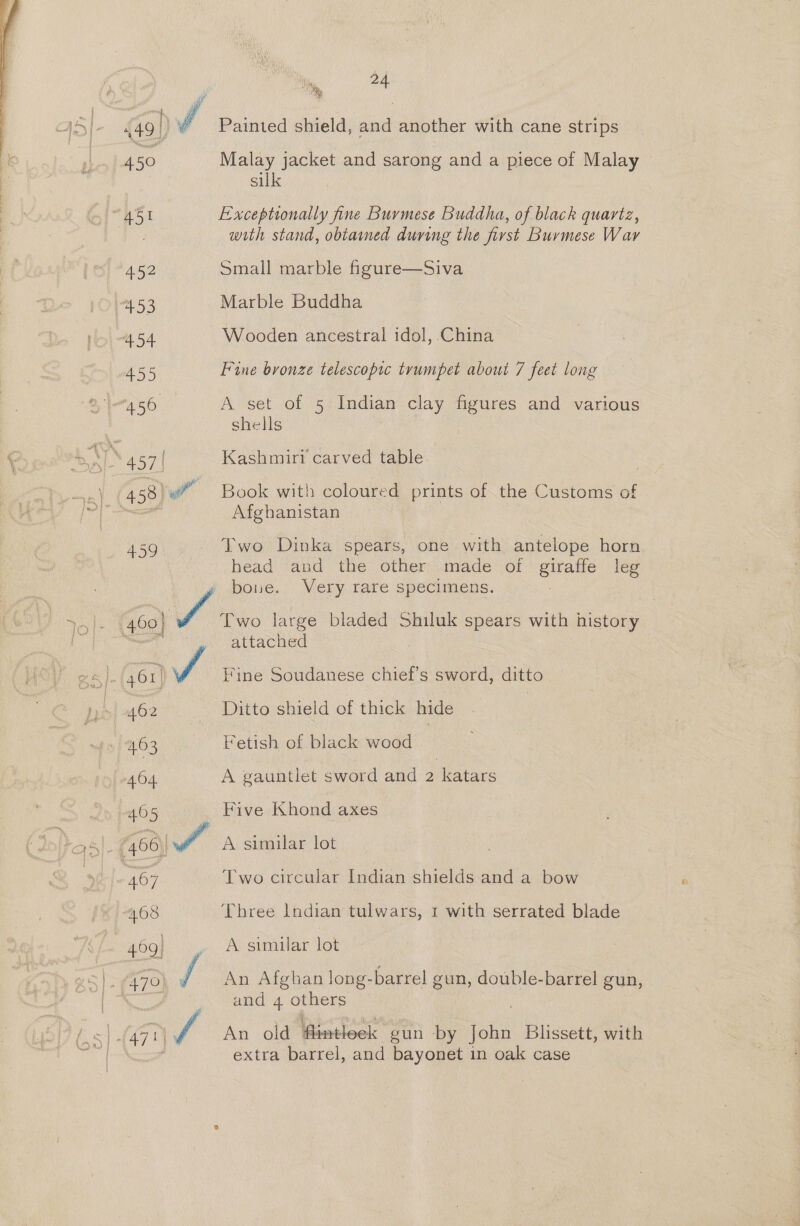 24
45/- 449 Painted shield, and another with cane strips
450 Malay jacket and sarong and a piece of Malay
silk
451 Exceptionally fine Burmese Buddha, of black quartz,
with stand, obtained during the first Burmese War
452 Small marble figure—Siva
453 Marble Buddha
454 Wooden ancestral idol, China
455 Fine bronze telescopic trumpet about 7 feet long
456 A set of 5 Indian clay figures and various
shells
457 Kashmiri carved table
458 Book with coloured prints of the Customs of
Afghanistan
459 Two Dinka spears, one with antelope horn
head and the other made of giraffe leg
bone. Very rare specimens.
460 Two large bladed Shiluk spears with history
attached
461 Fine Soudanese chief's sword, ditto
462 Ditto shield of thick hide
463 Fetish of black wood
464 A gauntlet sword and 2 katars
465 Five Khond axes
466 A similar lot
467 Two circular Indian shields and a bow
468 Three Indian tulwars, 1 with serrated blade
469 A similar lot
470 An Afghan long-barrel gun, double-barrel gun,
and 4 others
471 An old flintlock gun by John Blissett, with
extra barrel, and bayonet in oak case